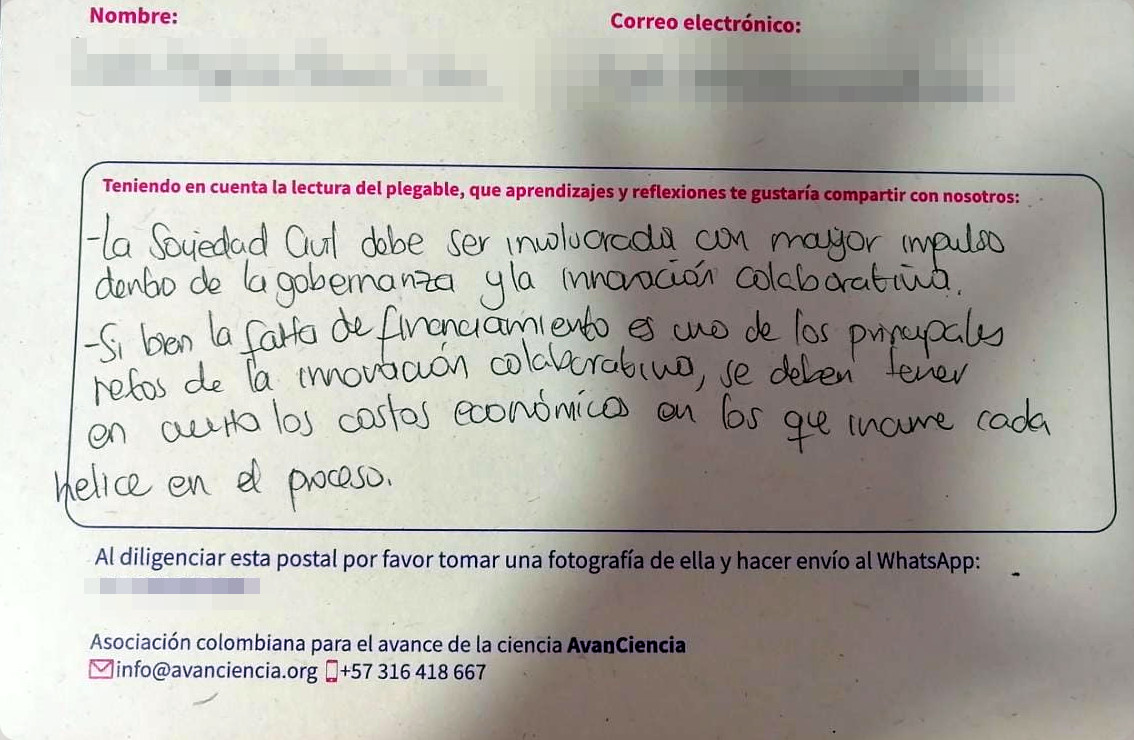 Nombre:
Correo electrónico:
Teniendo en cuenta la lectura del plegable, que aprendizajes y reflexiones te gustaría compartir con nosotros:
-La Sociedad Civil debe ser involucrada con mayor impulso
dentro de la gobernanza y la innovación colaborativa.
-Si bien la falta de financiamiento es uno de los principales
retos de la innovación colaborativa, se deben tener
en cuenta los costos económicos en los que incurre cada
helice en el proceso.
Al diligenciar esta postal por favor tomar una fotografía de ella y hacer envío al WhatsApp:
Asociación colombiana para el avance de la ciencia AvanCiencia
info@avanciencia.org +57 316 418 667